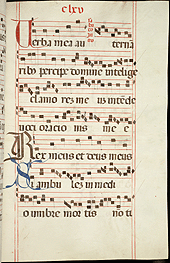 clxv
Uerba mea au
ribus percipe domine intelige
clamorez me
oracio nis me e
Rex meus et deus meus
Si ambu lez in medi
o umbre mor tis no ti